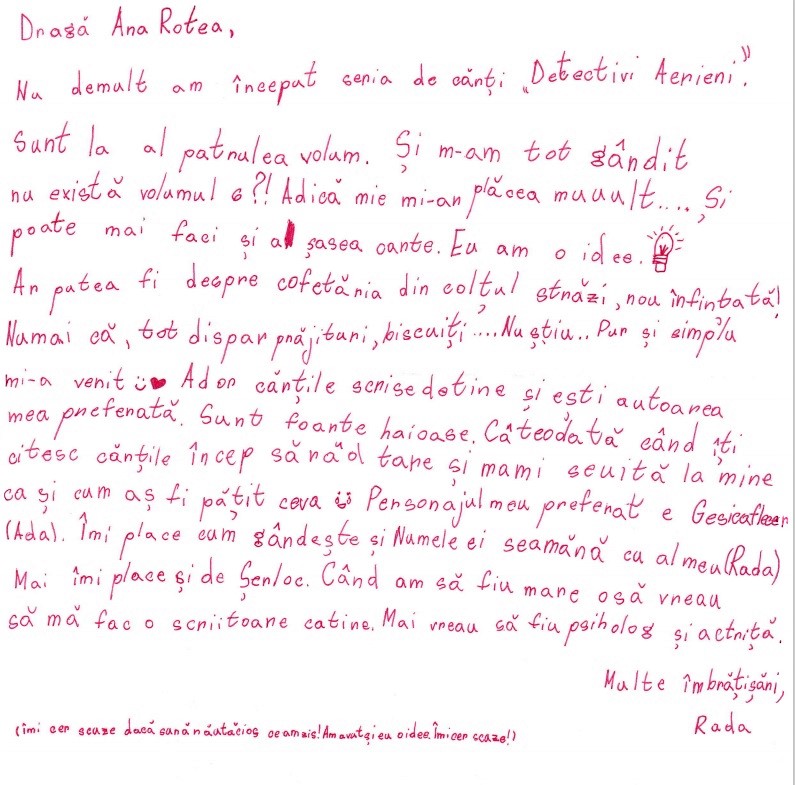 Dragă Ana Rotea,
Nu demult am început seria de cărți „Detectivi Aerieni”.
Sunt la al patrulea volum. Și m-am tot gândit
nu există volumul 6?! Adică mie mi-ar plăcea muuult.... Și
poate mai faci și al șasea carte. Eu am o idee.
Ar putea fi despre cofetăria din colțul străzi, nou înfințată!
Numai că, tot dispar prăjituri, biscuiți....Nu știu.. Pur și simplu
mi-a venit Ador cărțile scrise de tine și ești autoarea
mea preferată. Sunt foarte haioase. Câteodată când îți
citesc cărțile încep să râd tare și mami se uită la mine
ca și cum aș fi pățit ceva Personajul meu preferat e Gesicafleer
(Ada). Îmi place cum gândește și Numele ei seamănă cu al meu (Rada)
Mai îmi place și de Șerloc. Când am să fiu mare o să vreau
să mă fac o scriitoare ca tine. Mai vreau să fiu psiholog și actriță.
Multe îmbrățișări,
Rada
(îmi cer scuze dacă sună răutăcios ce am zis! Am avut și eu o idee. Îmi cer scuze!)